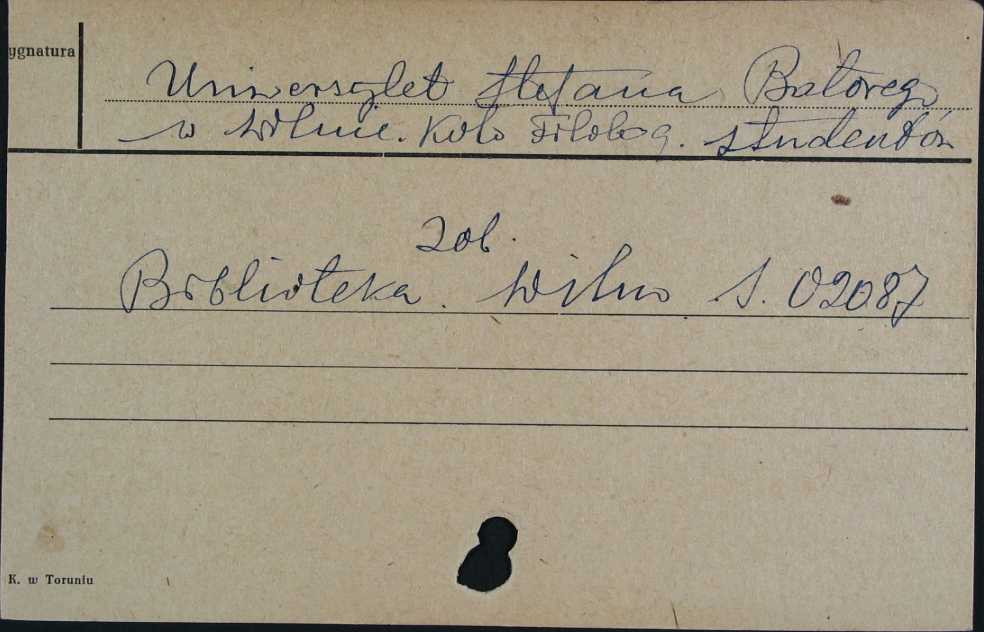 ygnatura
Uniwersytet Stefana Batorego
w Wilnie. Koło Filolog. studentów
Zob.
Biblioteka. Wilno S. 02087
K. w Toruniu